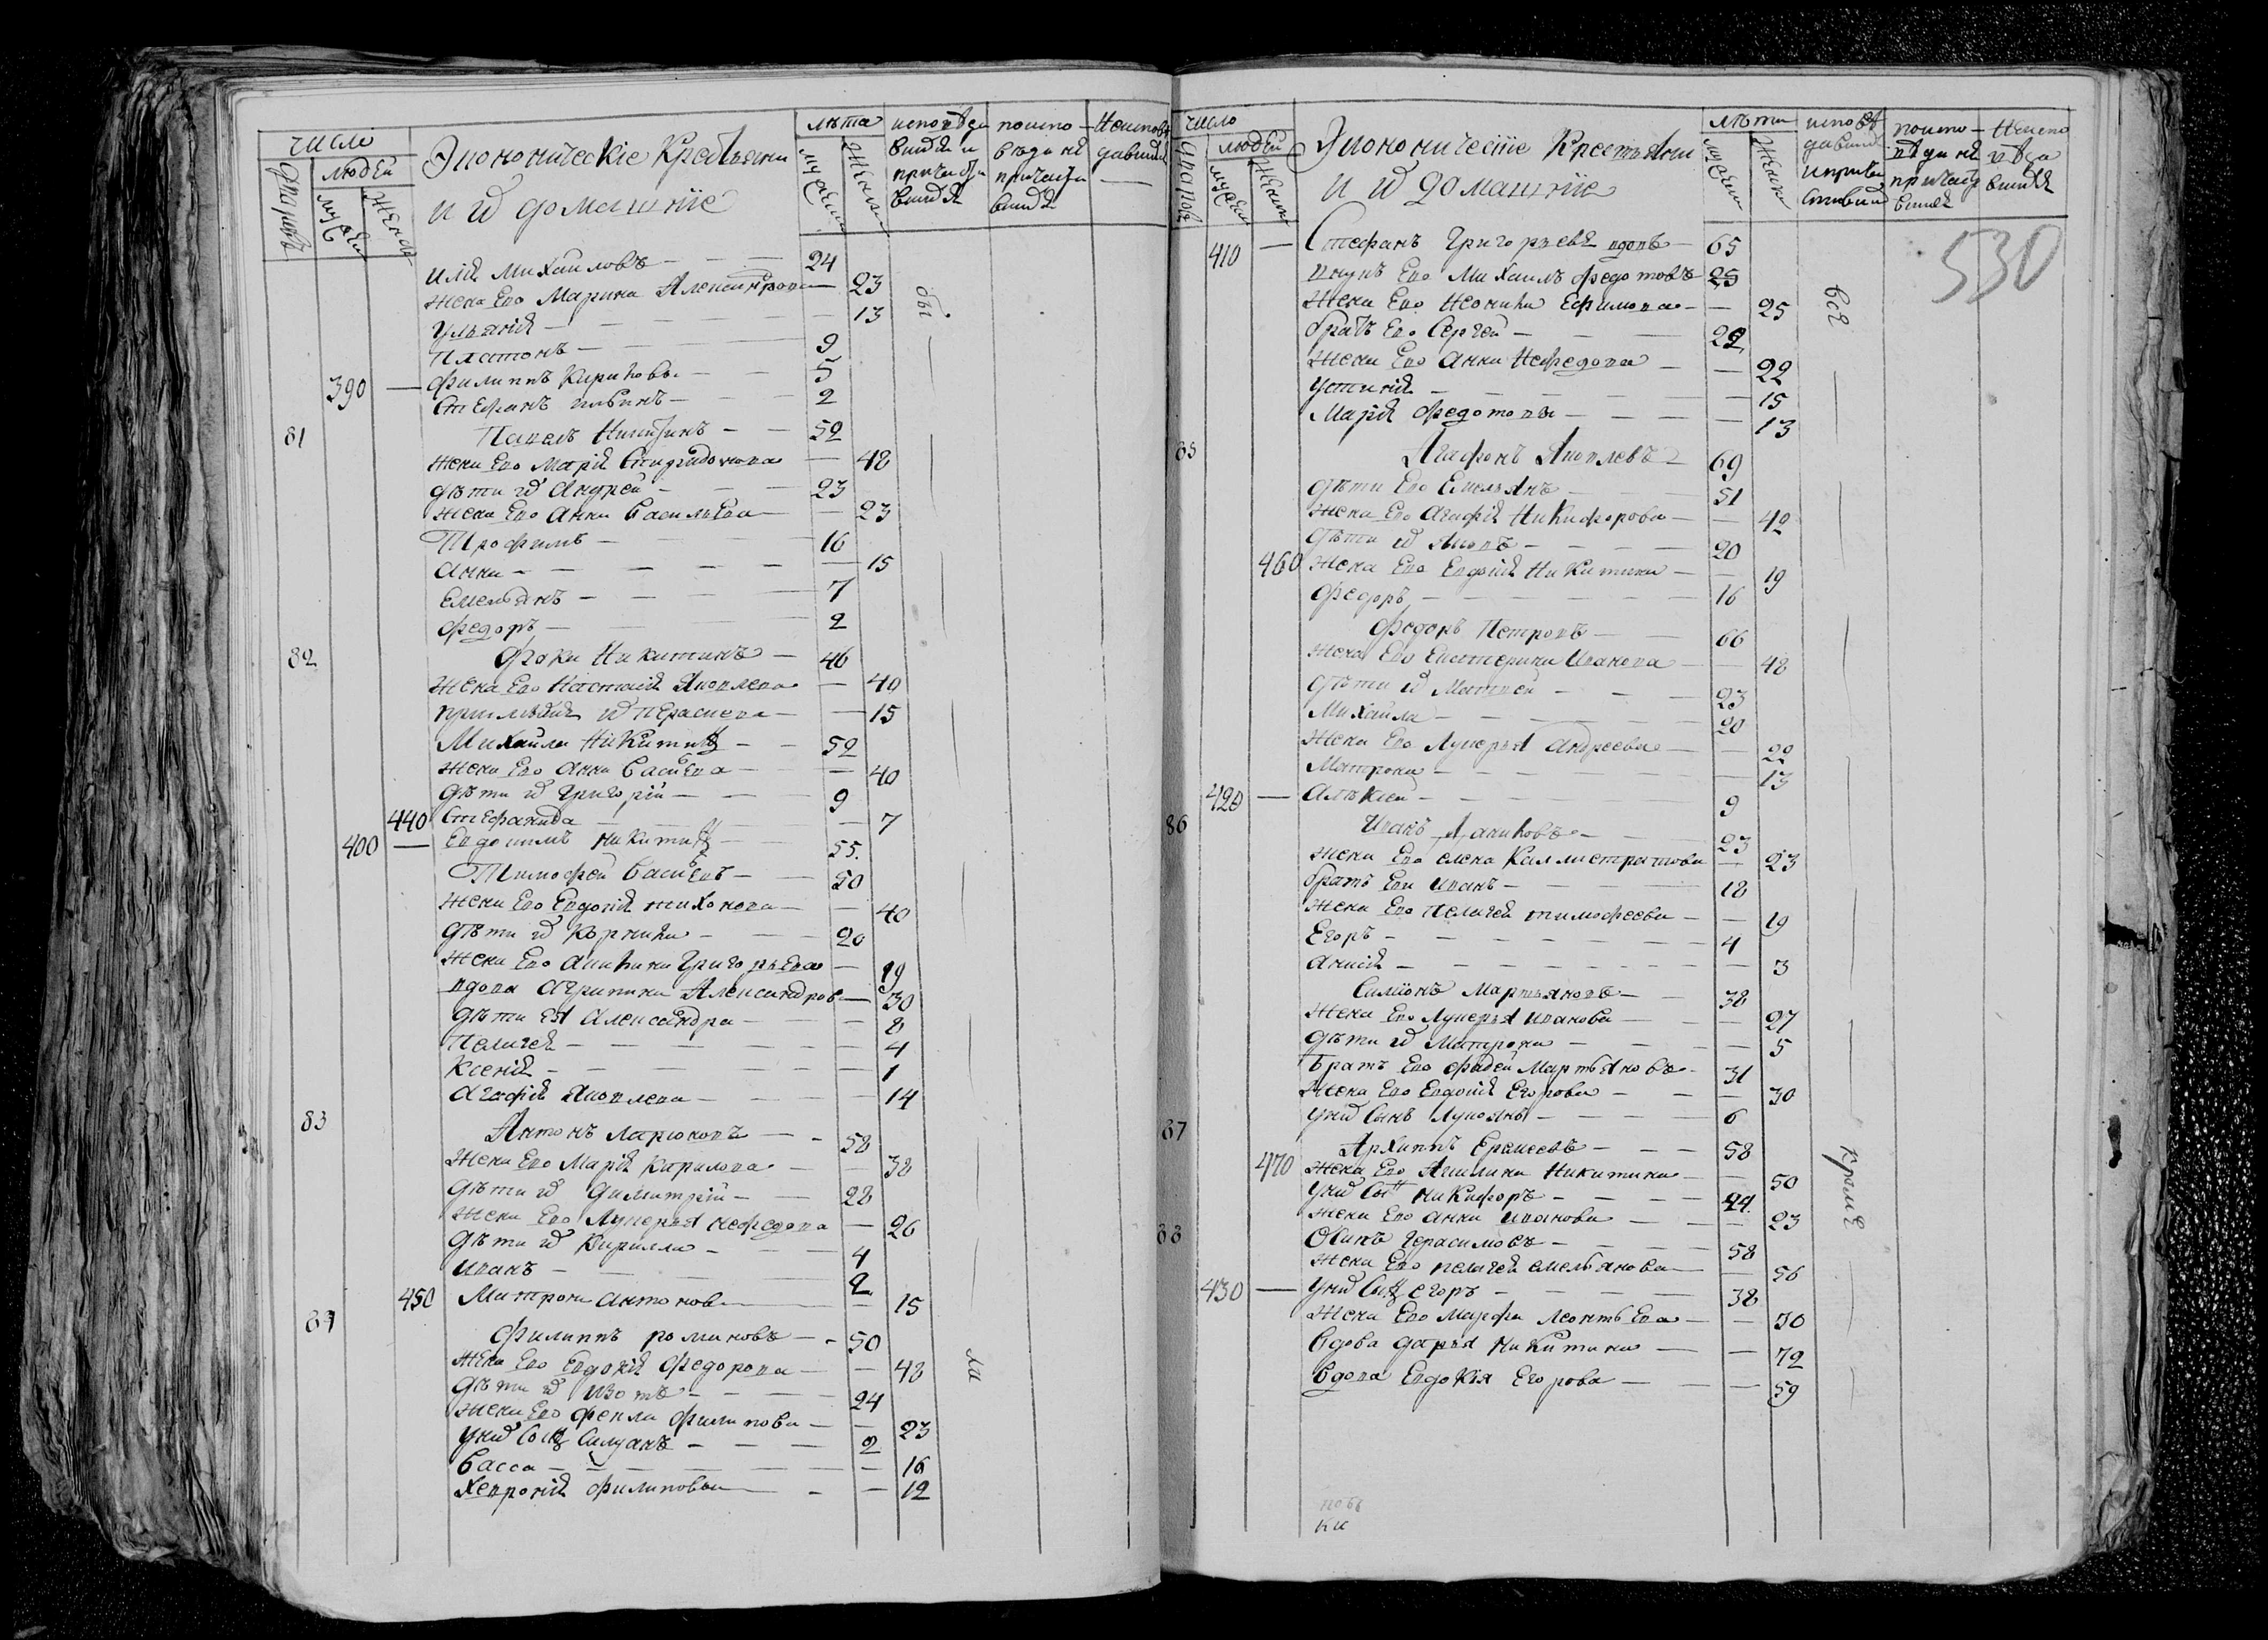 число
людей
Дворовъ
мужеска
женска
Экономическіе Крестьяни
и их домашніе
лѣта
мужеска
женска
исповѣдавшихся и причастившихся
исповѣдавшихся не причастившихся
Неисповѣдавшихся
Илія Михайловъ — 24
жена Его Марина Александрова — 23
Ульянія — 13
Платонъ — 9
390 — Филиппъ Кириловы — 5
Стефанъ — 2
81 Павелъ Никитинъ — 52
жена Его Марія Спиридонова — 48
дѣти их Андрей — 23
жена Его Анна Васильева — 23
Трофимъ — 16
Анна — 15
Емельянъ — 7
Федоръ — 2
82 Фока Никитинъ — 46
жена Его Настасія Яковлева — 40
их Параскева — 15
Михайла Никитинъ — 52
жена Его Анна Васильева — 40
дѣти их Григорій — 9
440 Стефанида — 7
400 — Евдокимъ Никитинъ — 55
Тимофей Васильевъ — 50
жена Его Евдокія Тихонова — 40
дѣти их Корнила — 20
жена Его Григорьева — 19
вдова Агрипина Александрова — 30
дѣти ея Александра — 8
Пелагея — 4
Ксенія — 1
Агафія Яковлева — 14
83 Антонъ Ларионовъ — 58
жена Его Марія Кирилова — 38
дѣти их Димитрій — 28
жена Его Лукерья Нефедова — 26
дѣти их Кирилла — 4
Иванъ — 2
450 Матрона Антонова — 15
84 Филиппъ Романовъ — 50
жена Его Евдокія Федорова — 48
дѣти их Изотъ — 24
жена Его Фекла Филипова — 23
у них сынъ Силуанъ — 2
Васса — 16
Хевронія Филиповы — 12
бы
ли
число
людей
Дворовъ
мужеска
женска
Экономическіе Крестьяни
и их домашніе
лѣта
мужеска
женска
исповѣдавшихся и причастившихся
исповѣдавшихся не причастившихся
Неисповѣдавшихся
530
410 — Стефанъ Григорьевъ вдовъ — 65
внукъ Его Михаилъ Федотовъ — 25
жена Его Неонила Ефимова — 25
братъ Его Сергей — 22
жена Его Анна Нефедова — 22
Устинія — 15
Марія Федотовы — 13
85 Агафонъ Яковлевъ — 69
дѣти Его Емельянъ — 51
жена Его Агафія Никифорова — 42
дѣти их Яковъ — 20
460 жена Его Евдокія Никитина — 19
Федоръ — 16
Федоръ Петровъ — 66
жена Его Екатерина Иванова — 48
дѣти их Матвей — 23
Михайла — 20
жена Его Лукерья Андреева — 22
Матрона — 13
420 — Алексей — 9
86 Иванъ Даниловъ — 23
жена Его Елена Каллистратова — 23
братъ Его Иванъ — 18
жена Его Пелагея Тимофеева — 19
Егоръ — 4
Анисія — 3
Симіонъ Мартьяновъ — 38
жена Его Лукерья Иванова — 27
дѣти их Матрона — 5
братъ Его Фадей Мартьяновъ — 31
жена Его Евдокія Егорова — 30
у них сынъ Лукоянъ — 6
87 Архиппъ Еремеевъ — 58
470 жена Его Акилина Никитина — 50
у них сынъ Никифоръ — 24
жена Его Анна Иванова — 23
88 Осипъ Герасимовъ — 58
жена Его Пелагея Емельянова — 56
430 — у них сынъ Егоръ — 38
жена Его Марфа Леонтьева — 30
вдова Дарья Никитина — 72
вдова Евдокія Егорова — 59
всѣ
кромѣ